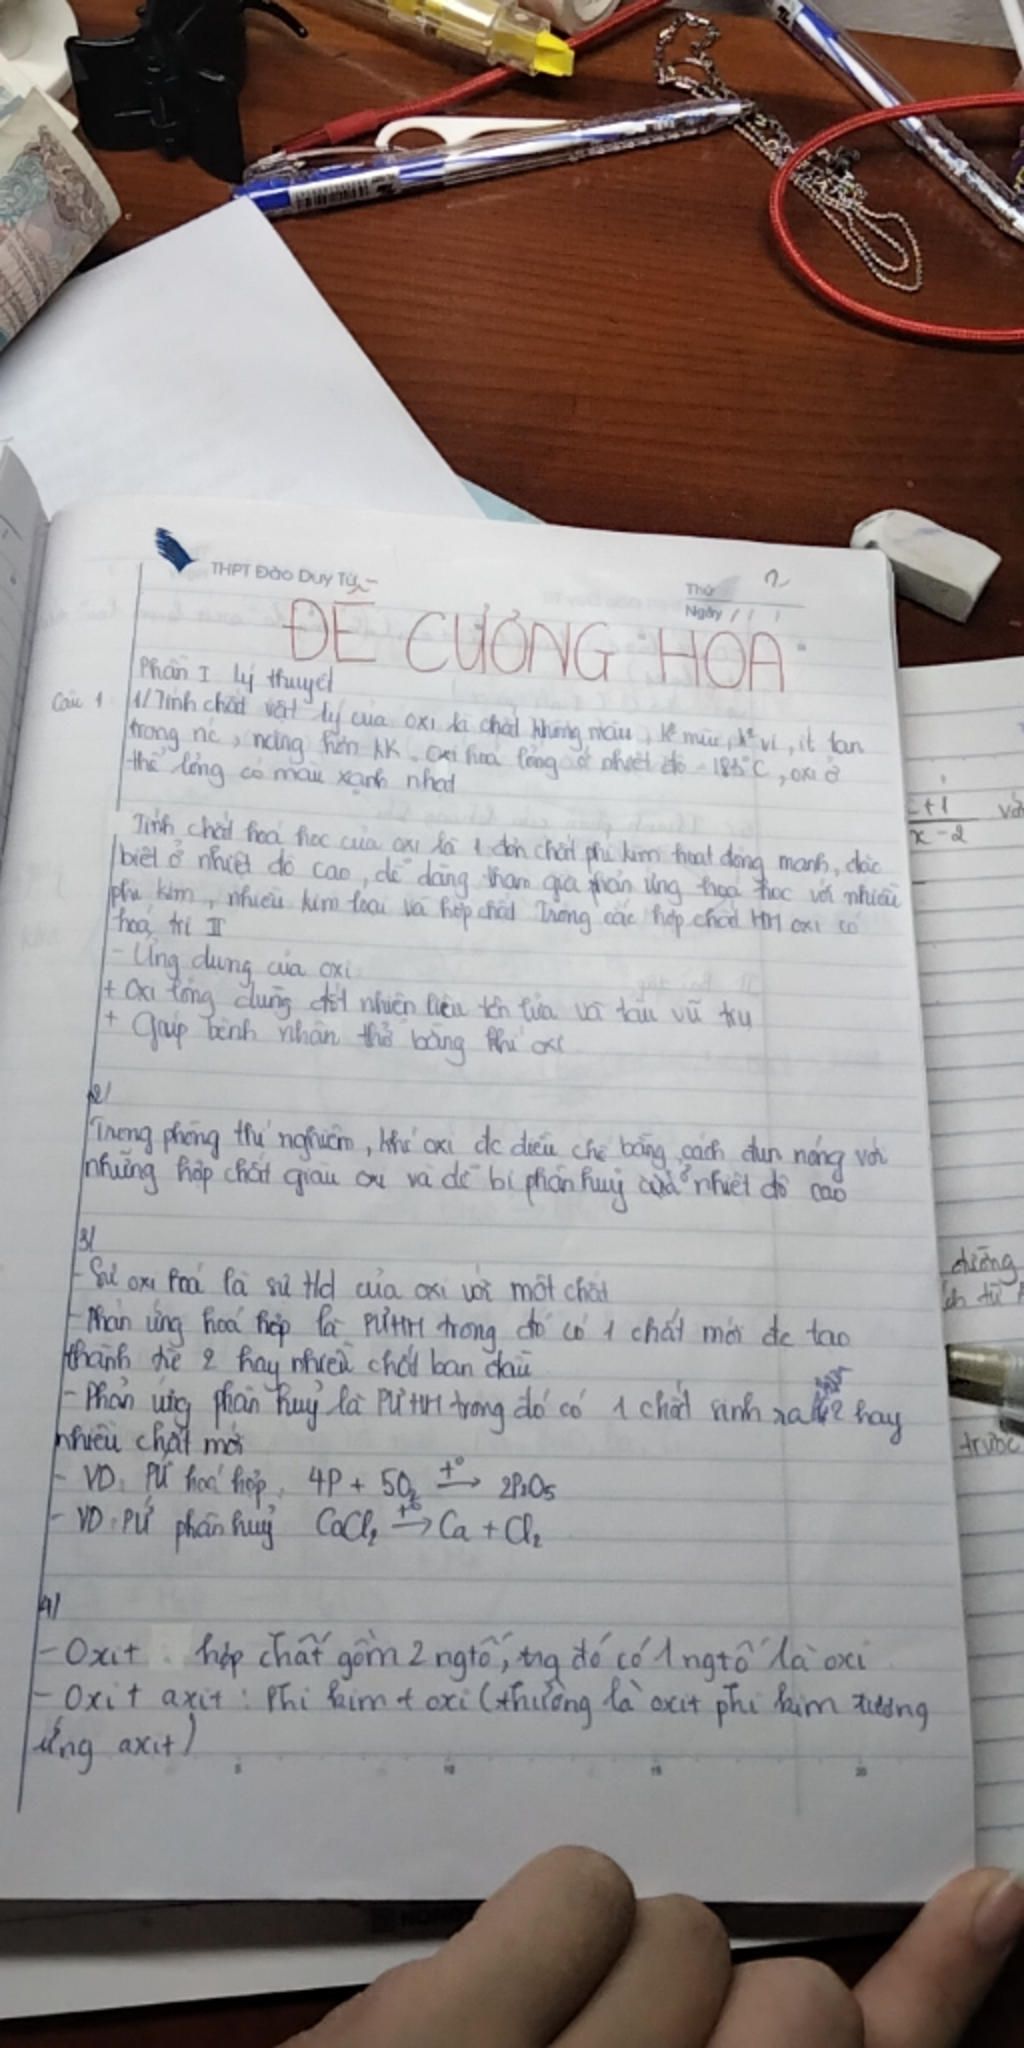 THPT Đào Duy Từ
Thứ 2
Ngày / /
ĐỀ CƯƠNG HOA
Phần I Lý thuyết
Câu 1
1/Tính chất vật lý của oxi là chất không màu, k° mùi, k° vị, ít tan
trong nc, nặng hơn kk. Oxi hoá lỏng ở nhiệt độ -183°C, oxi ở
thể lỏng có màu xanh nhạt
Tính chất hoá học của oxi là 1 đơn chất phi kim hoạt động mạnh, đặc
biệt ở nhiệt độ cao, dễ dàng tham gia phản ứng hoá học với nhiều
phi kim, nhiều kim loại và hợp chất Trong các hợp chất HH oxi có
hoá trị II
- Ứng dụng của oxi
+ Oxi lỏng dùng đốt nhiên liệu tên lửa và tàu vũ trụ
+ Gaiúp bệnh nhân thở bằng khí oxi
2/
Trong phòng thí nghiệm, khí oxi đc điều chế bằng cách đun nóng với
những hợp chất giàu oxi và dễ bị phân huỷ ở nhiệt độ cao
3/
- Sự oxi hoá là sự td của oxi với một chất
- Phản ứng hoá hợp là PƯHH trong đó có 1 chất mới đc tạo
thành từ 2 hay nhiều chất ban đầu
- Phản ứng phân huỷ là PƯHH trong đó có 1 chất sinh ra 2 hay
nhiều chất mới
- VD: PƯ hoá hợp, 4P + 5O₂ t° → 2P₂O₅
- VD: PƯ phân huỷ CaCl₂ t° → Ca + Cl₂
4/
- Oxit : hợp chất gồm 2 ngtố, trg đó có 1 ngtố là oxi
- Oxit axit : Phi kim + oxi (thường là oxit phi kim tương
ứng axit)
5 10 15 20
x+1
x-2
với
dừng
trước